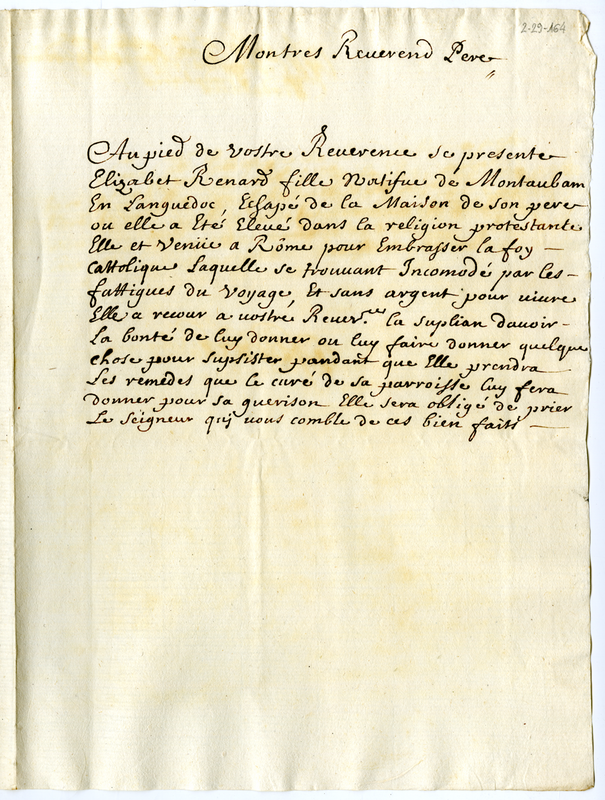 2-29-164
Montres Reuerend Pere
Au pied de vostre Reuerence se presente
Elizabet Renard fille Natifue de Montaubam
En Languedoc, Echapé de la Maison de son pere
ou elle a Eté Elevé dans la religion protestante
Elle et Venüe a Rôme pour Embrasser la foy —
Cattolique Laquelle se trouuant Incomodé par les -
fattigues du Voyage, Et sans argent pour uiure
Elle a recour a uostre Reuer.ce la suplian dauoir -
La bonté de luy donner ou luy faire donner quelque
chose pour supsister pandant que Elle prendra
Les remedes que le curé de sa parroisse luy fera
donner pour sa guerison Elle sera obligé de prier
Le seigneur qui uous comble de ces bien faits —